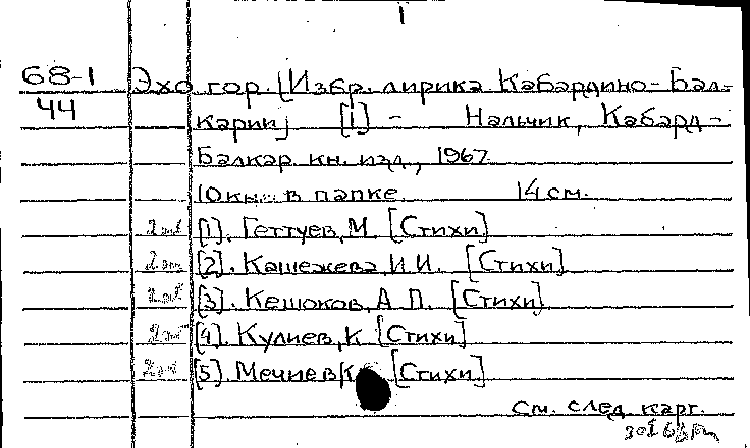 1
68-1 Эхо гор. [Избр. лирика Кабардино-Бал-
44 карии] [1] - Нальчик, Кабард-
Балкар. кн. изд., 1967
10 кн. в папке 14 см.
[1]. Геттуев, М. [Стихи]
[2]. Кашежева, И.И. [Стихи]
[3]. Кешоков, А.П. [Стихи]
[4]. Кулиев, К [Стихи]
[5]. Мечиев, К. [Стихи]
См. след. карт.